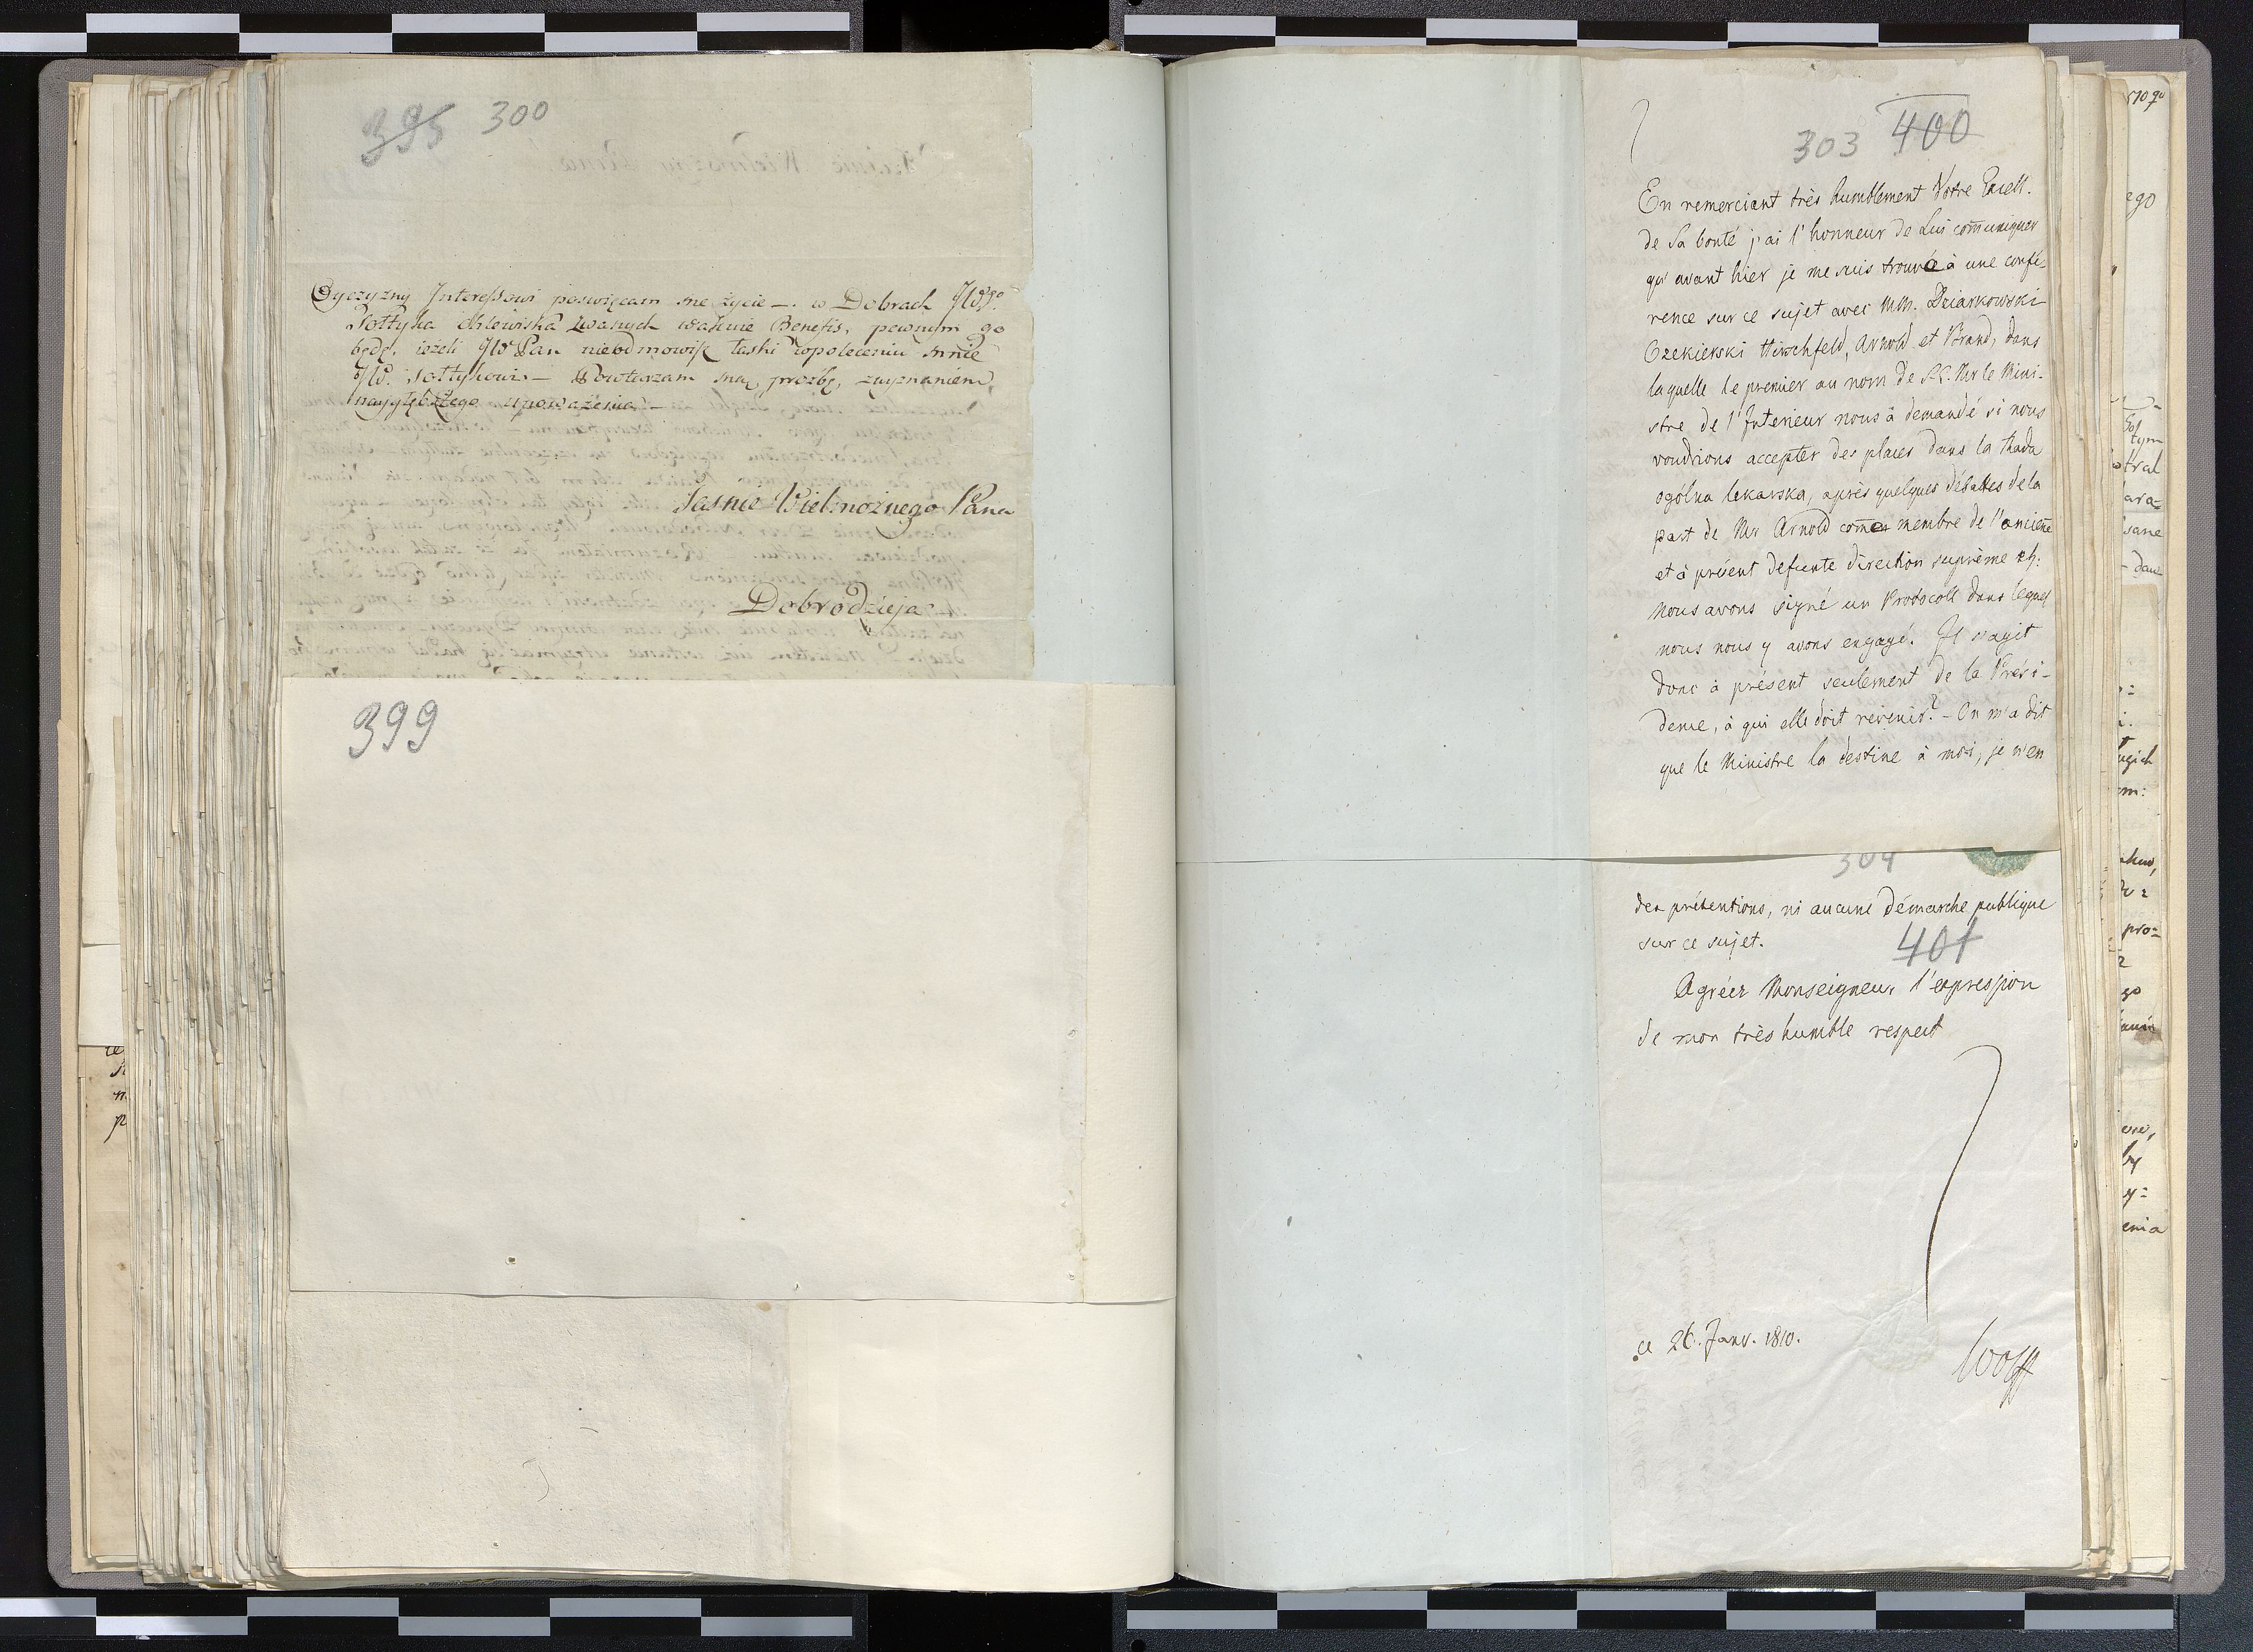 395 300
Oyczyzny Interessowi poswięcam me życie –. w Dobrach JW°go
Sołtyka Chlewiska zwanych wakuie Benefis, pewnym go
będę, ieżeli JW Pan nieodmowisz łaski w poleceniu mnie
JW. Sołtykowi – Powtarzam mą prozbę, z wyznaniem,
naygłębszego upoważenia –
Jasnie Wielmożnego Pana
Dobrodzieja
399
303 400
En remerciant très humblement Votre Excell.
de Sa bonté j'ai l'honneur de Lui com̄uniquer
qu'avant hier je me suis trouvé à une confé-
rence sur ce sujet avec MM. Dziarkowski
Czekierski Hirschfeld, Arnold et Brand, dans
laquelle le premier au nom de S.E. Mr le Mini-
stre de l'Interieur nous à demandé si nous
voudrions accepter des places dans la Rada
ogólna lekarska, après quelques débattes de la
part de Mr Arnold com̄e membre de l'ancien̄e
et à présent defunte direction suprème
nous avons signé un Protocoll dans lequel
nous nous y avons engagé. Il s'agit
donc à présent seulement de la Prési-
dence, à qui elle doit revenir? – On m'a dit
que le Ministre la destine à moi, je n'en
304
des prétentions, ni aucune démarche publique
sur ce sujet.
401
Agréez Monseigneur l'expression
de mon très humble respect
ce 26. Janv. 1810.
Wolff